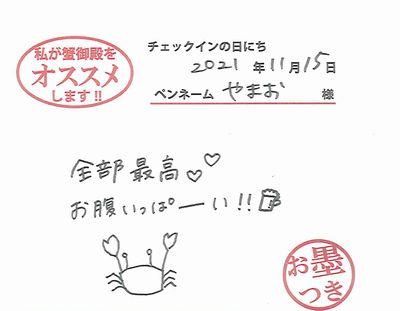 私が蟹御殿を
オススメ
します!!
チェックインの日にち
2021年11月15日
ペンネーム やまお 様
全部最高♡♡
お腹いっぱーい!!
お墨
つき